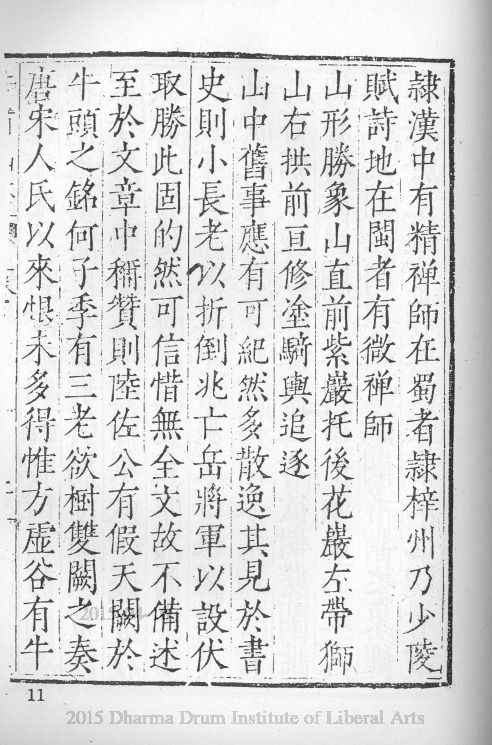 隸漢中有精禅師在蜀者隸梓州乃少陵
賦詩地在閩者有微禅師
山形勝象山直前紫巖托後花巖左帶獅
山右拱前亘修塗騎輿追逐
山中舊事應有可紀然多散逸其見於書
史則小長老以折倒兆亡岳將軍以設伏
取勝此固的然可信惜無全文故不備述
至於文章中稱贊則陸佐公有假天闕於
牛頭之銘何子季有三老欲樹雙闕之奏
唐宋人氏以來恨未多得惟方虛谷有牛
11
2015 Dharma Drum Institute of Liberal Arts